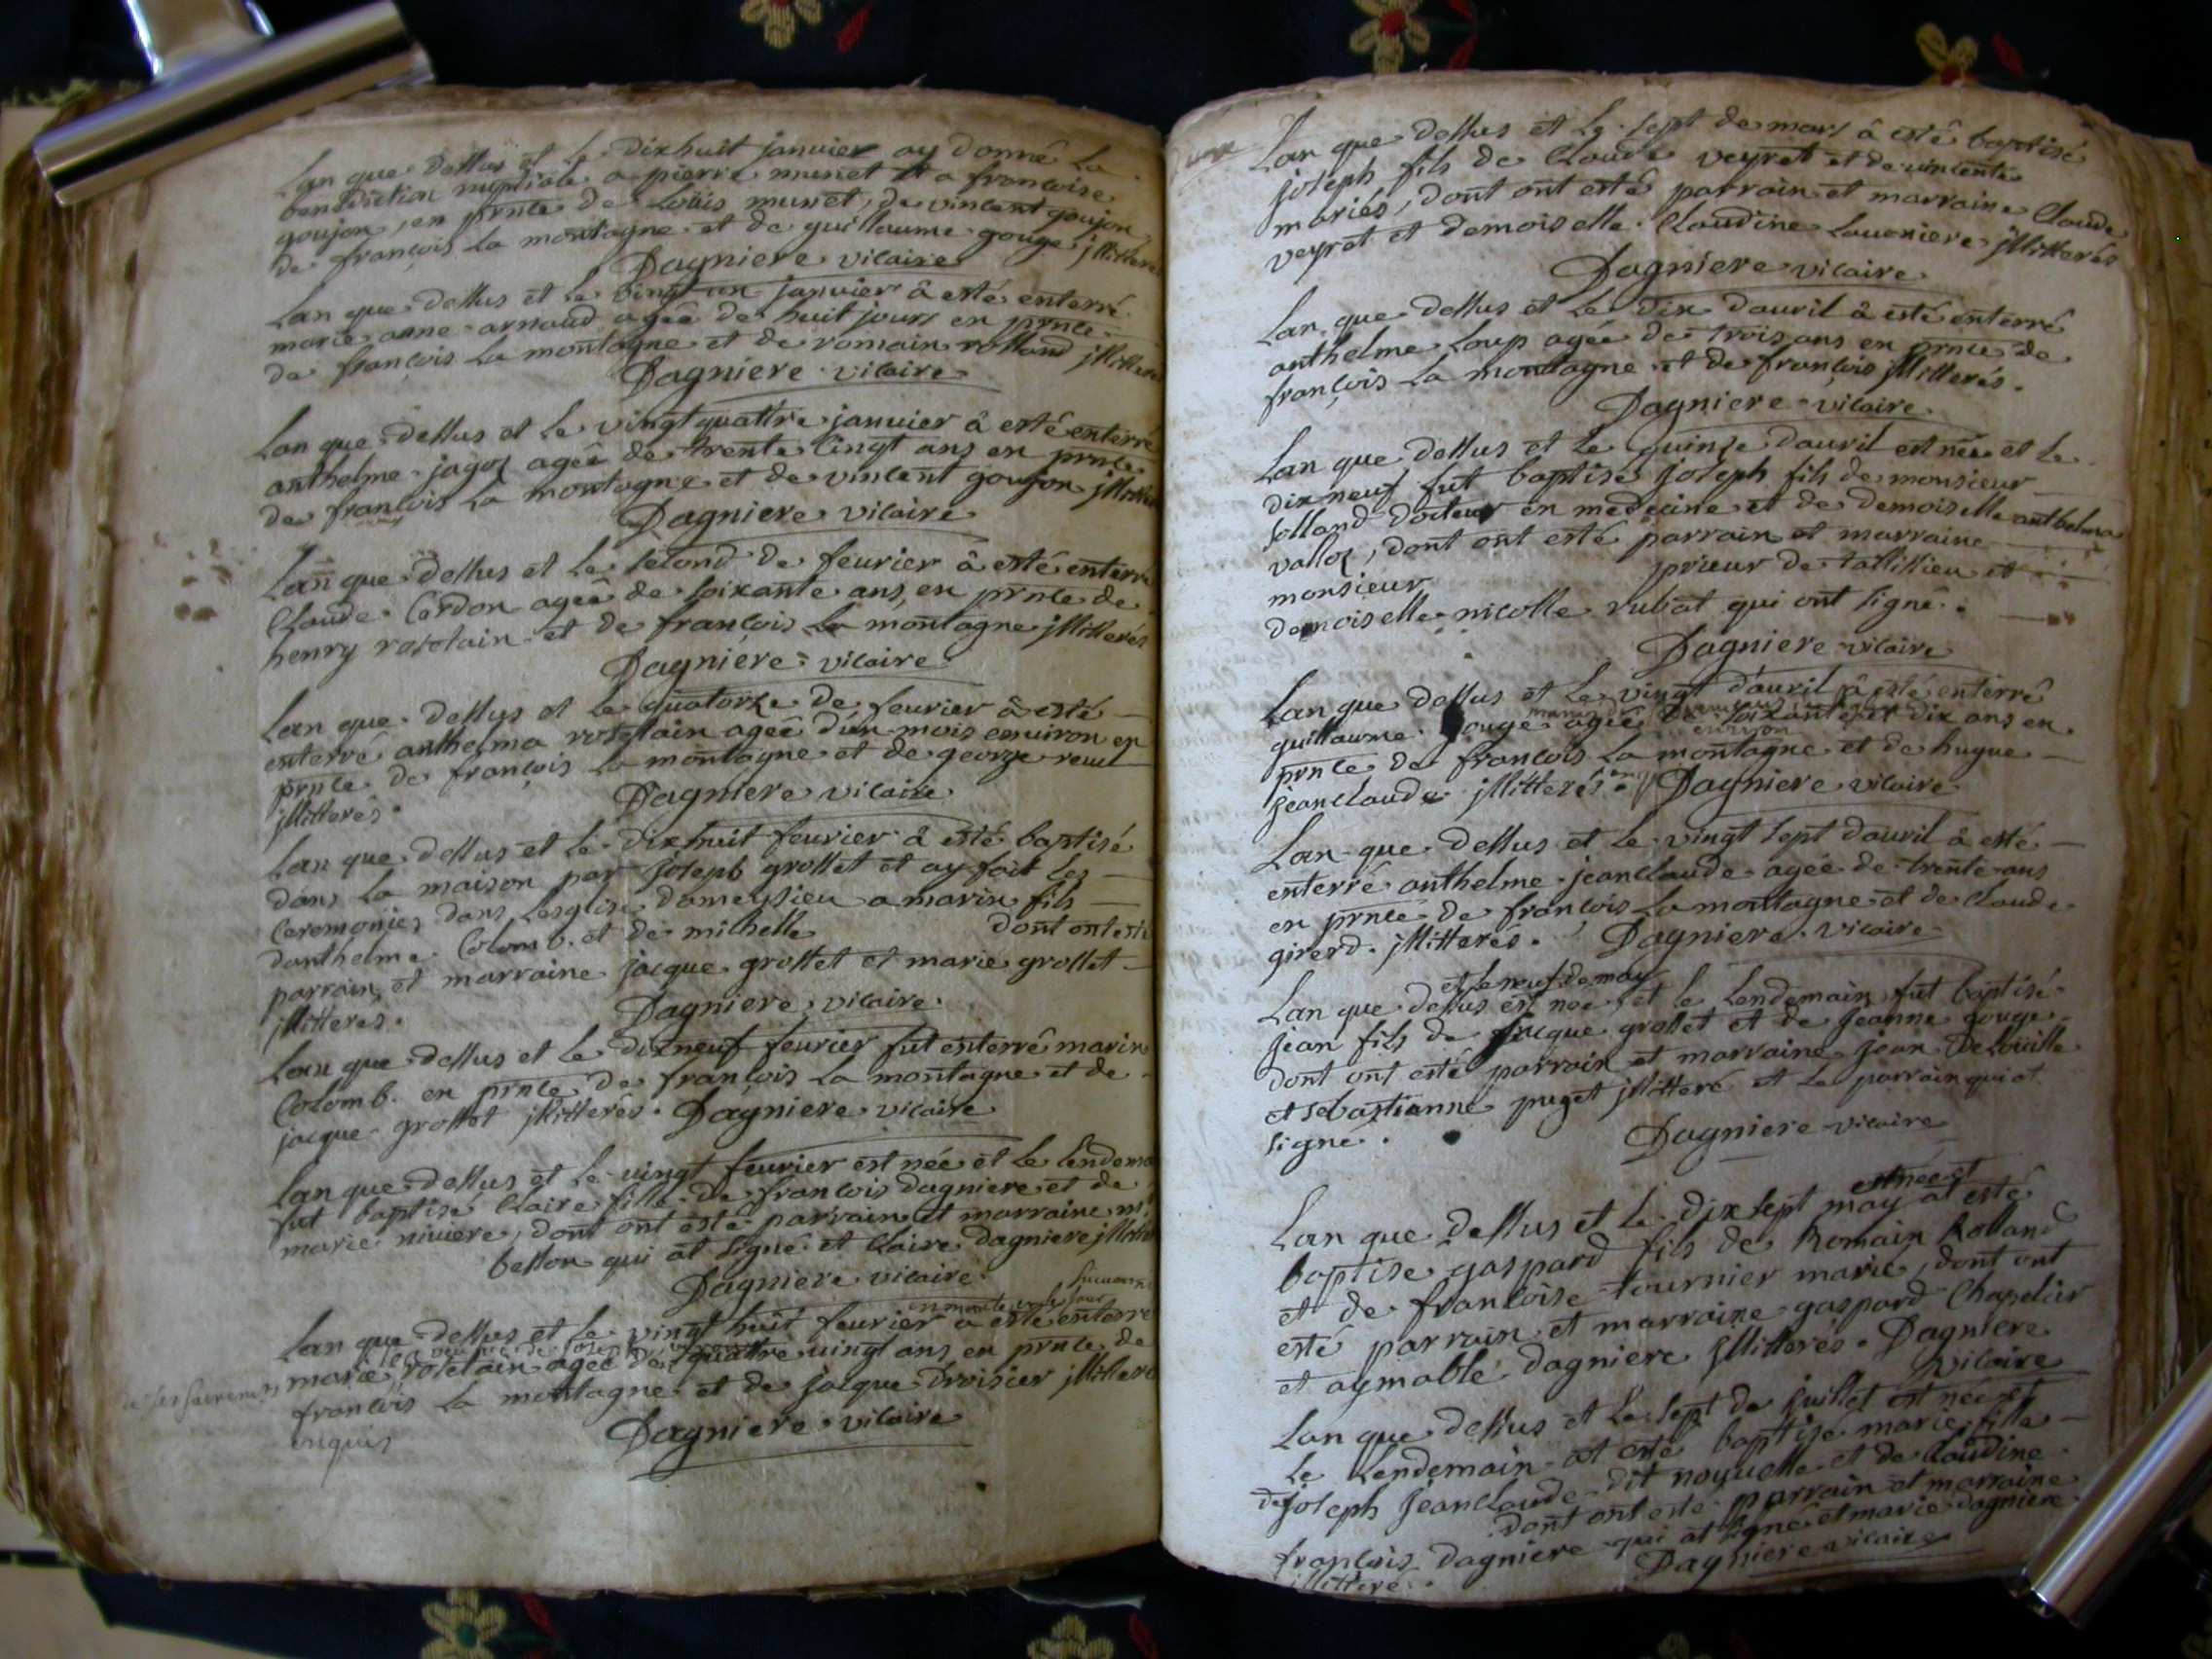 Lan que dessus et le dixhuit janvier ay donné la
benediction nuptiale a pierre munet et a francoise
goujon, en prnce de Loüis munet, de vincent goujon
de françois la montagne et de guillaume gouge jllitteré
Dagniere vicaire
Lan que dessus et le vingt un janvier â esté enterré
marie anne arnaud agée de huit jours en prnce
de françois la montagne et de romain rolland jllitteré
Dagniere vicaire
Lan que dessus et le vingt quattre janvier â esté enterré
anthelme jagoz agée de trente cingt ans en prnce
de francois la montagne et de vincent goujon jllitteré
Dagniere vicaire
Lan que dessus et le second de feurier â esté enterré
Claude Cordon agée de soixante ans, en prnce de
henry rostelain et de françois la montagne jllitterés
Dagniere vicaire
Lan que dessus et le quatorze de feurier â esté
enterré anthelma rostelain agée d'un mois enuiron en
prnce de françois la montagne et de george reuel
jllitterés.
Dagniere vicaire
Lan que dessus et le dixhuit feurier â esté baptisé
dans la maison par joseph grosset et ay fait les
Ceremonies dans Lesglise dameysieu a marin fils
danthelme Colomb. et de michelle dont ont esté
parrain et marraine jacque grosset et marie grosset
jllitteres.
Dagniere vicaire.
Lan que dessus et le dixneuf feurier fut enterré marin
Colomb. en prnce de françois la montagne et de
jacque grosset jllitterés. Dagniere vicaire
Lan que dessus et le vingt feurier est née et le lendema
fut baptisé Claire fille de francois dagniere et de
marie niuiere, dont ont esté parrain et marraine
besson qui at signé et Claire Dagniere
Dagniere vicaire
Lan que dessus et le vingt huit feurier a esté enterré
marie rostelain agée de quatre uingt ans en prnce de
de ses sacremens
francois la montagne et de jacque droisier jllitteré
enquis
Dagniere vicaire
Lan que dessus et le sept de mars â esté baptisé
joseph fils de Claude veyret et de vincente
mariés, dont ont esté parrain et marraine Claude
veyret et demoiselle Claudine Lauoniere jllitterés
Dagniere vicaire
Lan que dessus et le dix dauril â esté enterré
anthelme Loup agée de trois ans en prnce de
françois la montagne et de françois jllitterés.
Dagniere vicaire
Lan que dessus et le quinze dauril est née et le
dixneuf fut baptisé Joseph fils de monsieur
solland docteur en medecine et de demoiselle anthelma
valloz, dont ont esté parrain et marraine
monsieur prieur de tallissieu et
demoiselle nicolle rubat qui ont signé.
Dagniere vicaire
Lan que dessus et le vingt dauril â esté enterré
guillaume gouge agée de soixante et dix ans en
enuiron
prnce de francois la montagne et de hugue
jeanclaude jllitterés. Dagniere vicaire
Lan que dessus et le vingt sept dauril â esté
enterré anthelme jeanclaude agée de trente ans
en prnce de françois la montagne et de claude
girerd. jllitterés. Dagniere vicaire
et le neuf de may
Lan que dessus est née et le Lendemain fut baptisé
jean fils de jacque grosset et de Jeanne gouge
dont ont esté parrain et marraine jean Delouille
et sebastianne puget jllitteré et le parrain qui at
signé.
Dagniere vicaire
est née et
Lan que dessus et le dix sept may at esté
baptise gaspard fils de Romain Rolland
et de francoise tournier marié, dont ont
esté parrain et marraine gaspard Chapelier
et aymable dagniere jllitterés. Dagniere
vicaire
Lan que dessus et le sept de juillet est née et
le Lendemain at esté baptisé marie fille
de joseph Jeanclaude dit noyuelle et de claudine
dont ont esté parrain et marraine
françois dagniere qui at signé et marie dagniere
jllitteré. Dagniere vicaire